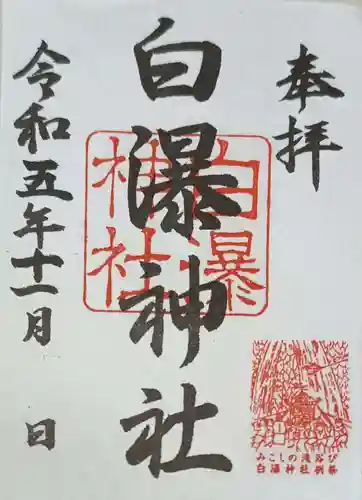 奉拝
白瀑神社
白瀑神社
みこしの滝浴び
白瀑神社例祭
令和五年十一月 日